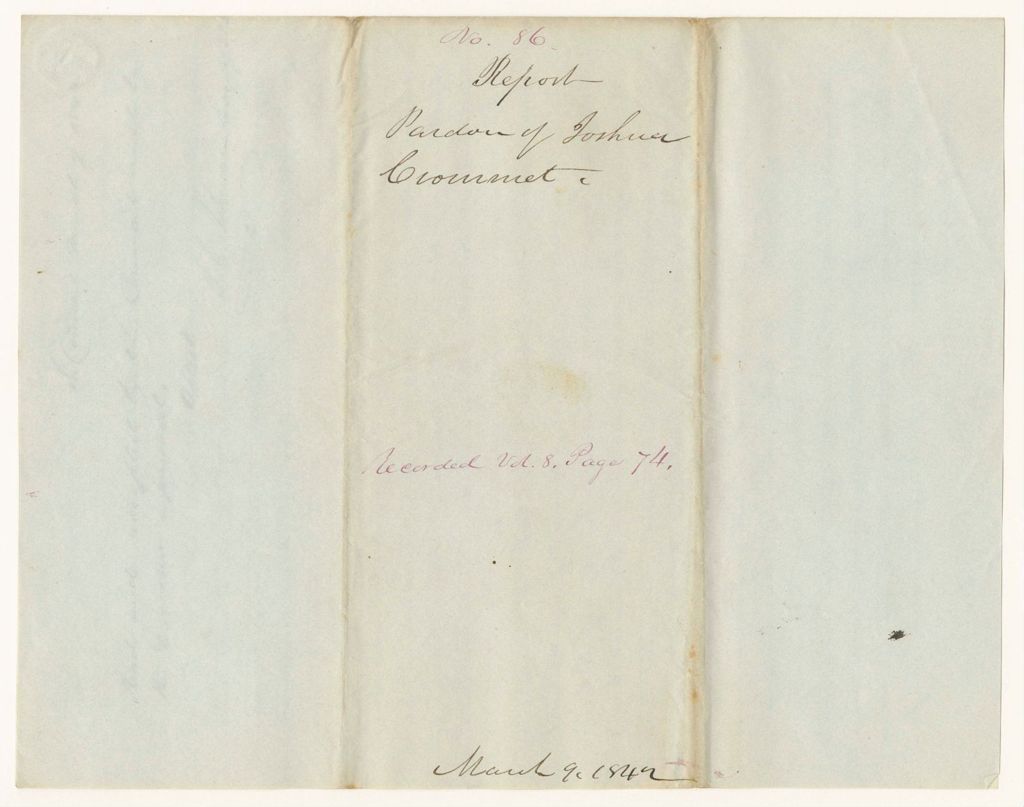 No. 86.
Report
Pardon of Joshua
Crommet.
Recorded Vol. 8. Page 74.
March 9. 1842